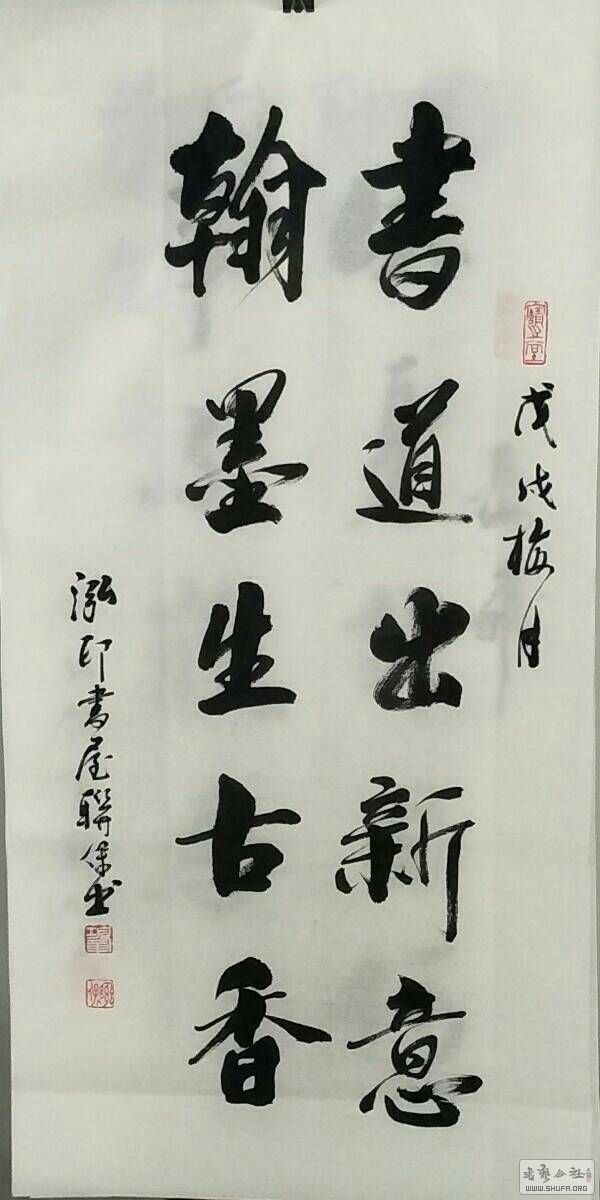 戊戌梅月
書道出新意
翰墨生古香
泓印書屋聯保书
書艺公社
WWW.SHUFA.ORG